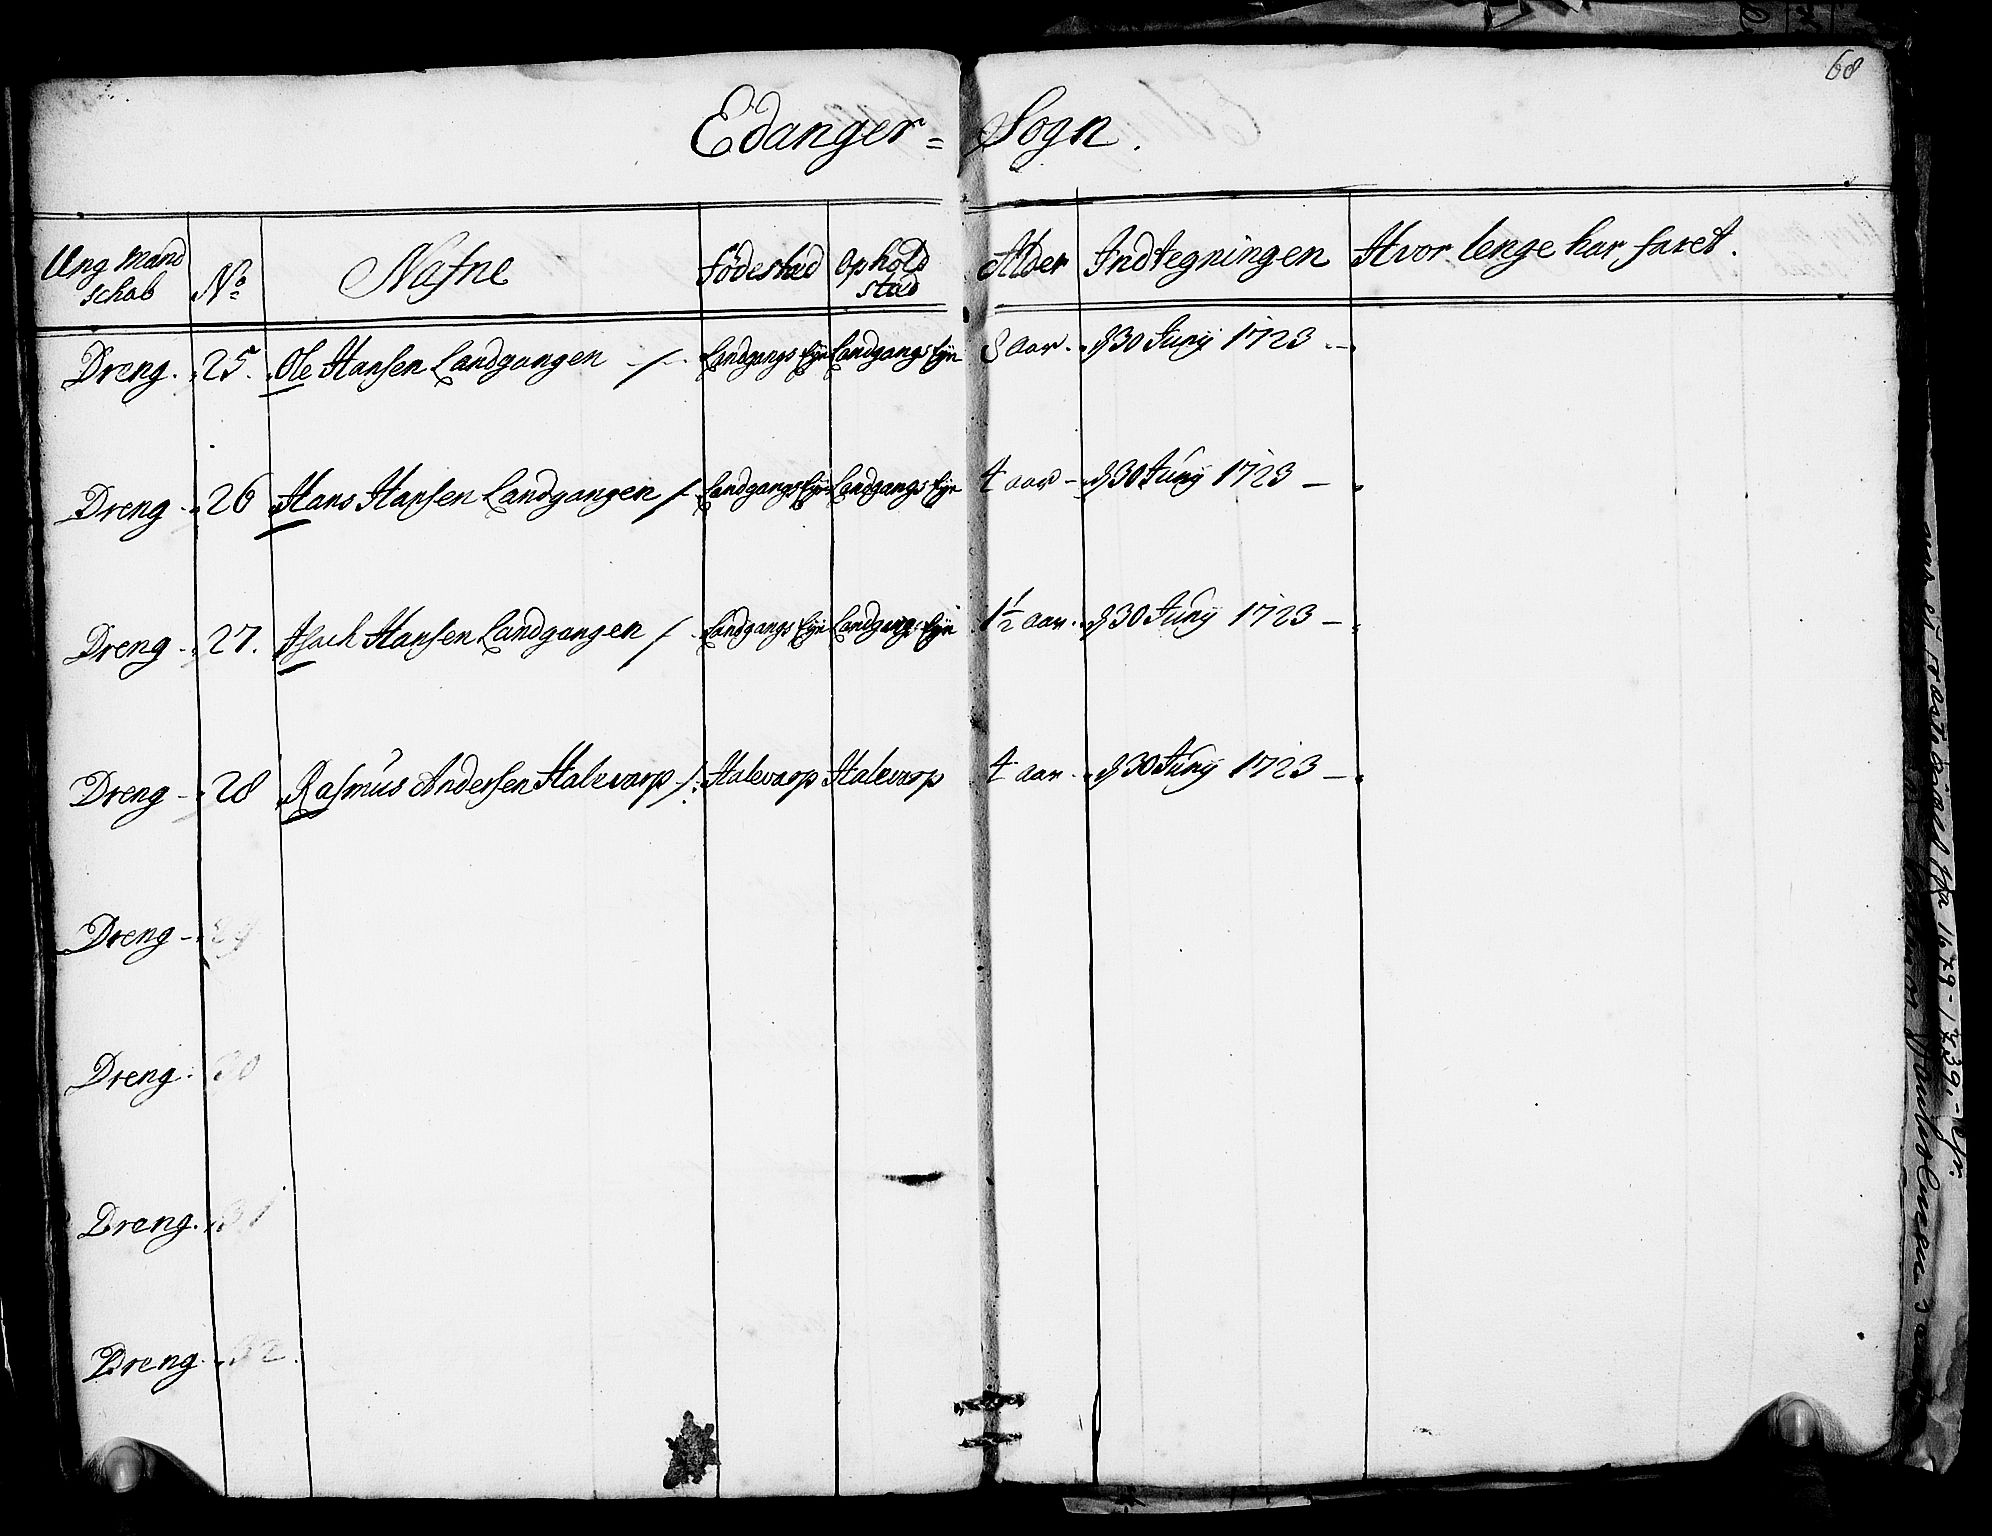 68
Edanger = Sogn.
Ung Mand schab No Nafne Födestad Ophold stad Alder Indtegningen Hvor lenge har faret.
Dreng. 25. Ole Hansen Landgangen Landgangs Eye Landgangs Eye 8 aar. d 30 Juny 1723
Dreng 26 Hans Hansen Landgangen Landgangs Eye Landgangs Eye 4 aar d 30 Juny 1723
Dreng 27. Isach Hansen Landgangen Landgangs Eye Landgangs Eye 1 1/2 aar. d 30 Juny 1723
Dreng 28 Rasmus Andersen Halevarp Halevarp Halevarp 4 aar d 30 Juny 1723
Dreng 29
Dreng. 30
Dreng. 31
Dreng. 32.
1679-1739.